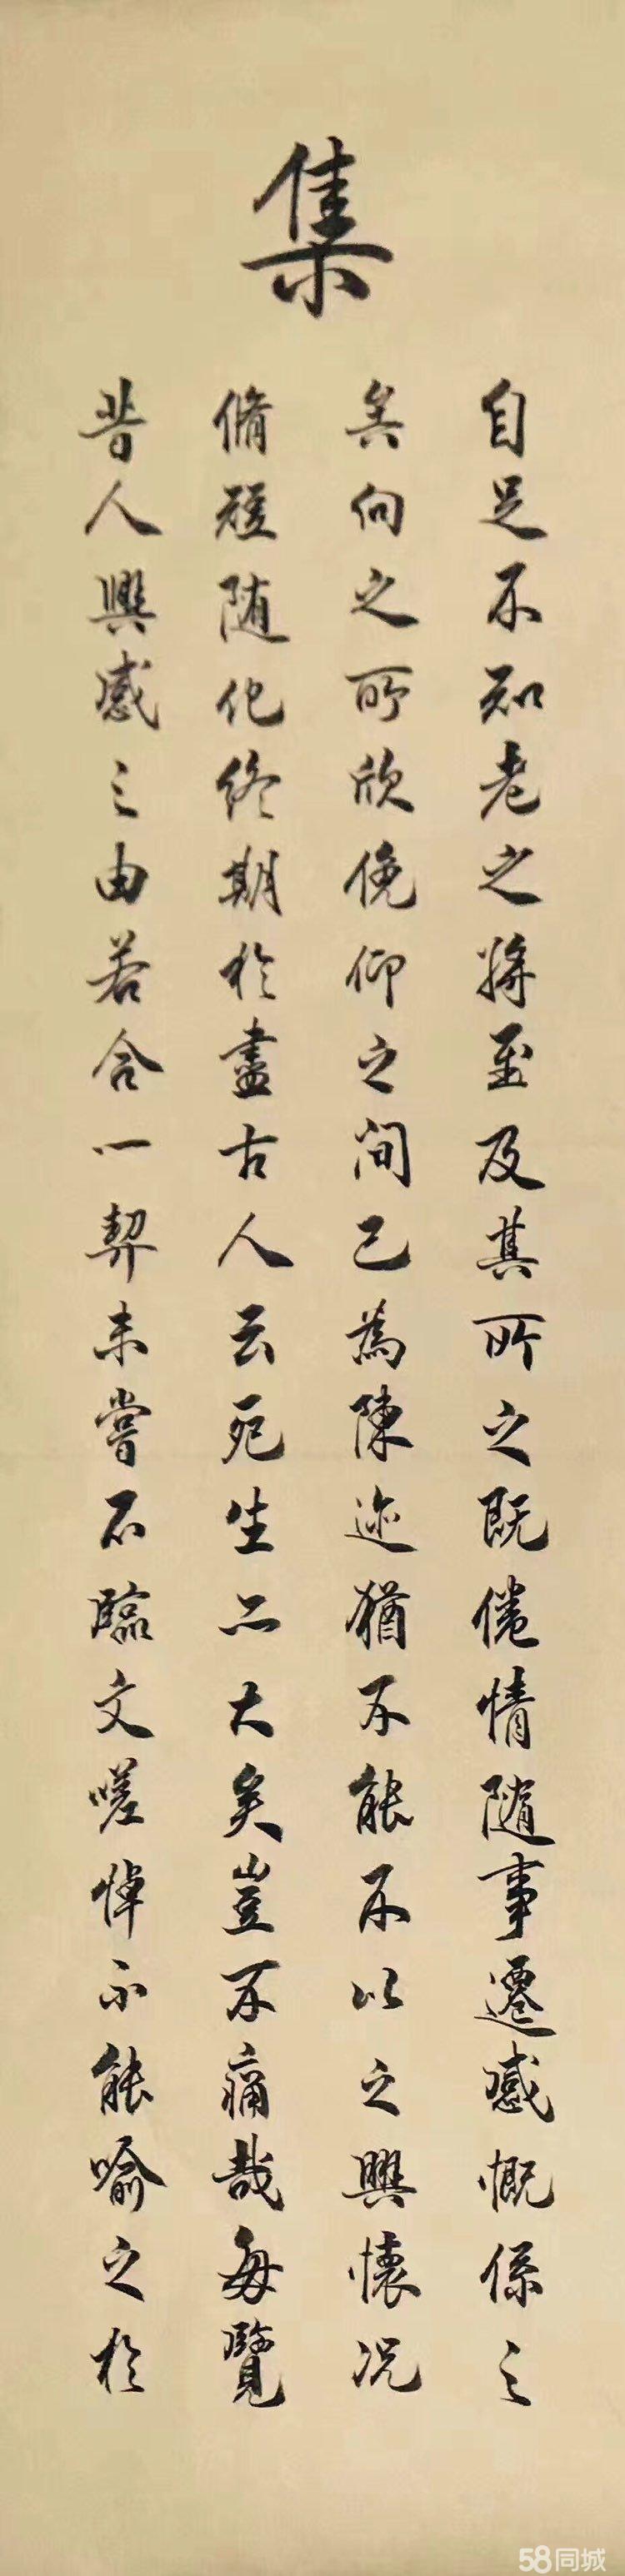 集
自足不知老之將至及其所之既倦情隨事遷感慨係之
矣向之所欣俛仰之間已為陳迹猶不能不以之興懷況
脩短随化終期於盡古人云死生亦大矣豈不痛哉每覽
昔人興感之由若合一契未嘗不臨文嗟悼不能喻之於
58同城